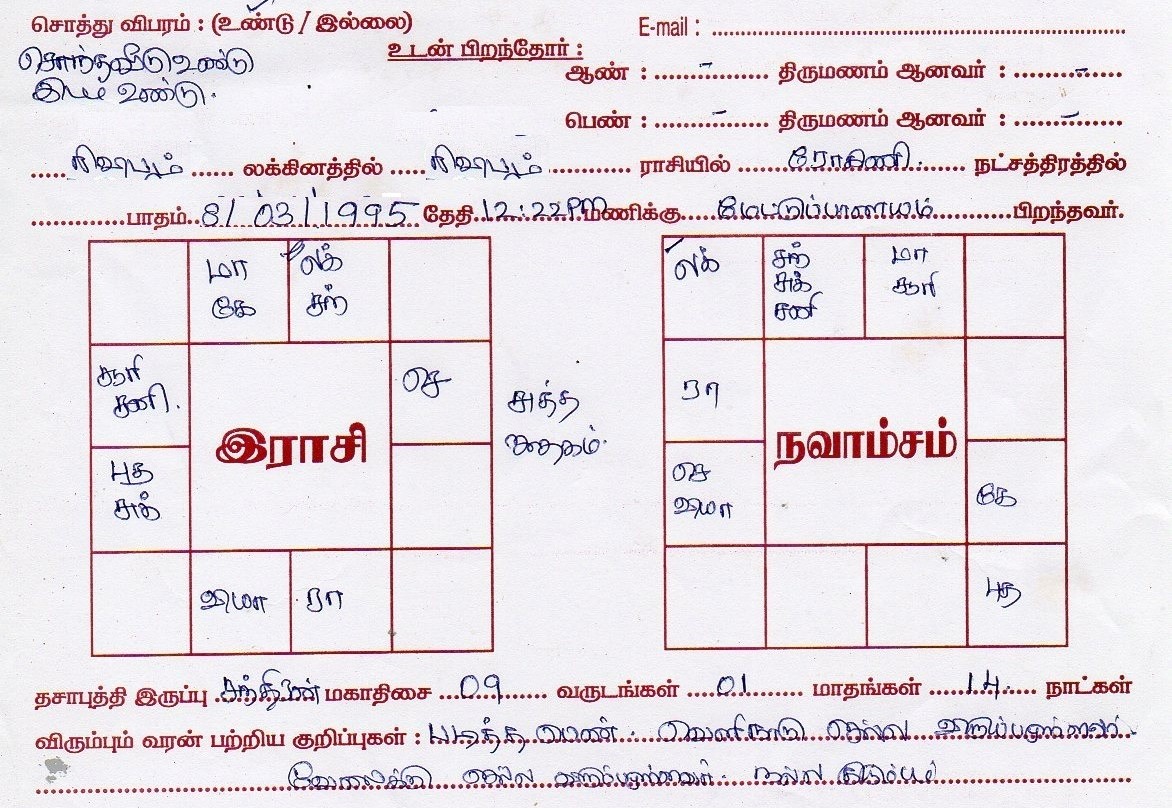 சொத்து விபரம் : (உண்டு / இல்லை)
E-mail :
சொந்தவீடு உண்டு
இடம் உண்டு.
உடன் பிறந்தோர் :
ஆண் : - திருமணம் ஆனவர் : -
பெண் : - திருமணம் ஆனவர் : -
ரிஷபம் லக்கினத்தில் ரிஷபம் ராசியில் ரோகிணி நட்சத்திரத்தில்
பாதம் 8/03/1995 தேதி 12:22PM மணிக்கு மேட்டுப்பாளையம் பிறந்தவர்.
மா
கே
லக்
சந்
சூரி
சனி.
செ
புத
சுக்
ரா
இராசி
சுத்த
ஜாதகம்.
லக்
சந்
சுக்
சனி
மா
சூரி
ரா
செ
கே
புத
நவாம்சம்
தசாபுத்தி இருப்பு சந்திரன் மகாதிசை 09 வருடங்கள் 01 மாதங்கள் 14 நாட்கள்
விரும்பும் வரன் பற்றிய குறிப்புகள் : படித்த பெண். வெளிநாடு செல்ல
வேலைக்கு செல்ல நல்ல குடும்பம்